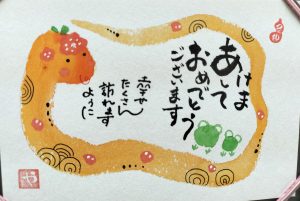 あけま
おいて
おめでとう
ございます
幸せ
たくさん
訪れます
ように